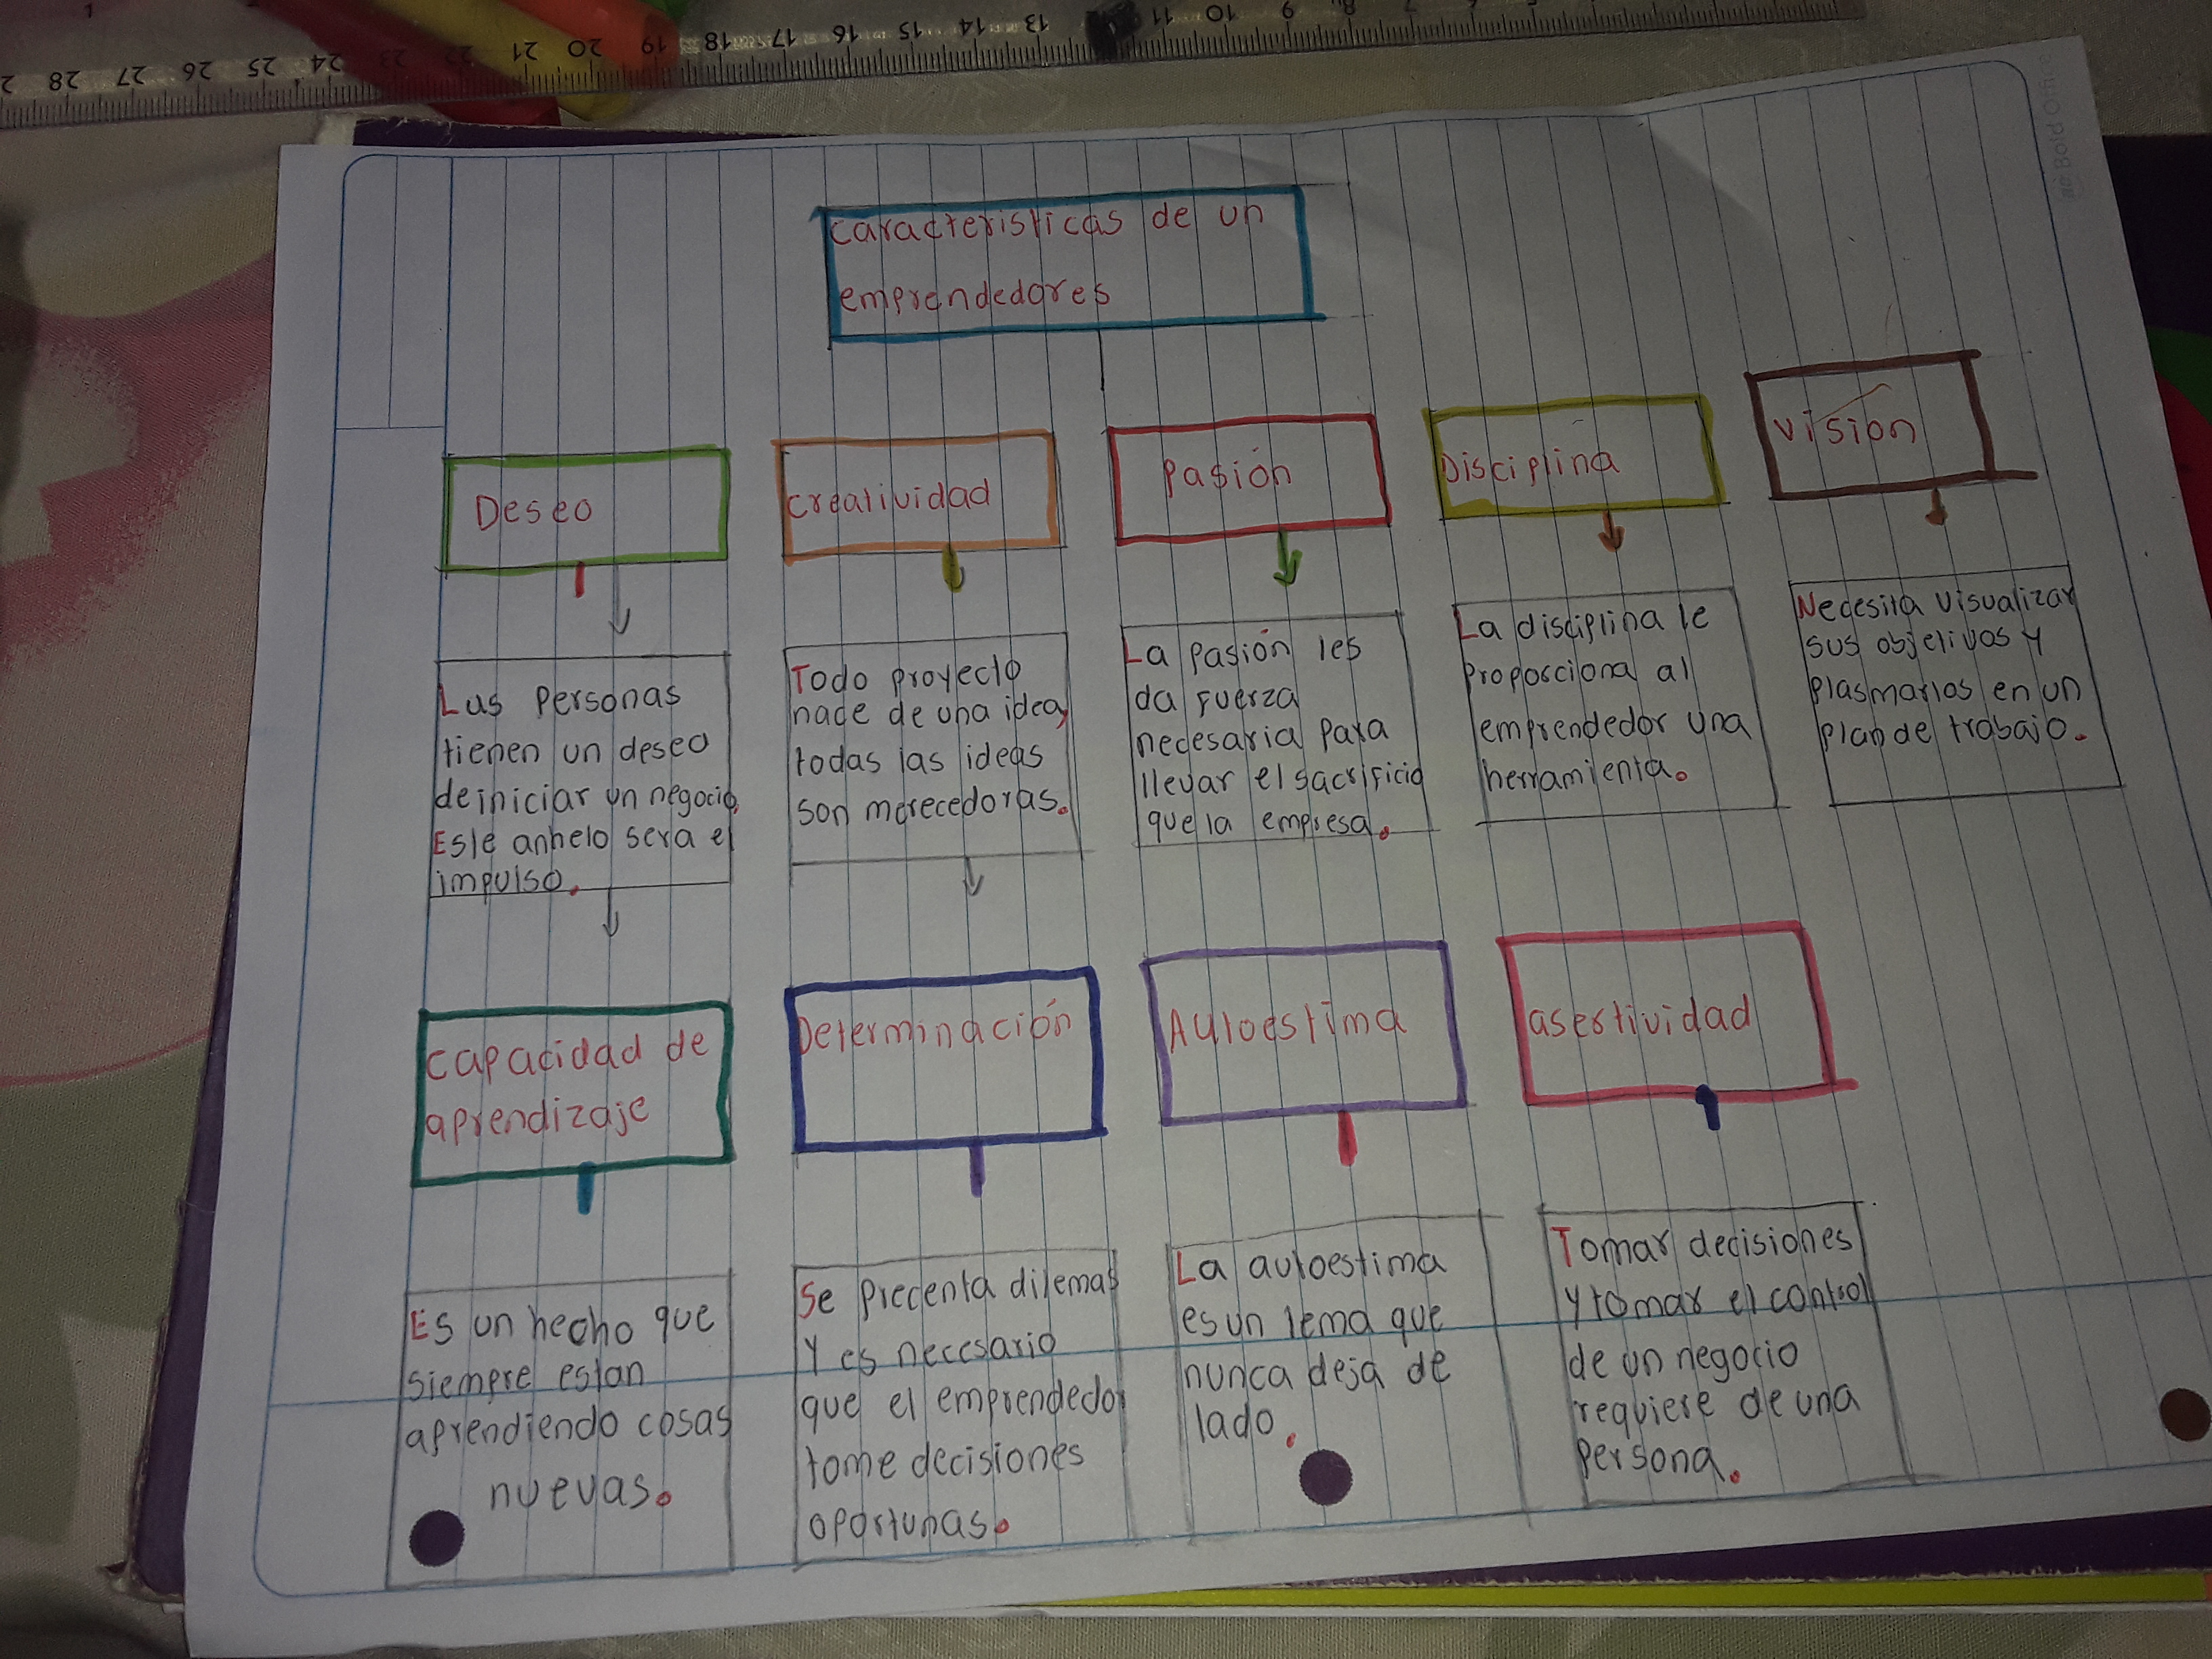 caracteristicas de un
emprendedores
Deseo
creatividad
Pasión
Disciplina
visión
Las Personas
tienen un deseo
de iniciar un negocio,
Este anhelo sera el
impulso.
Todo proyecto
nace de una idea,
todas las ideas
son merecedoras.
La pasión les
da fuerza
necesaria para
llevar el sacrificio
que la empresa.
La disciplina le
proporciona al
emprendedor una
herramienta.
Necesita visualizar
sus objetivos y
plasmarlos en un
plan de trabajo.
capacidad de
aprendizaje
Determinación
Autoestima
asertividad
Es un hecho que
siempre estan
aprendiendo cosas
nuevas.
Se precenta dilemas
Y es necesario
que el emprendedor
tome decisiones
oportunas.
La autoestima
es un tema que
nunca deja de
lado.
Tomar decisiones
y tomar el control
de un negocio
requiere de una
persona.
Bold One
28 27 26 25 24 23 22 21 20 19 18 17 16 15 14 13 11 10 9 8 7